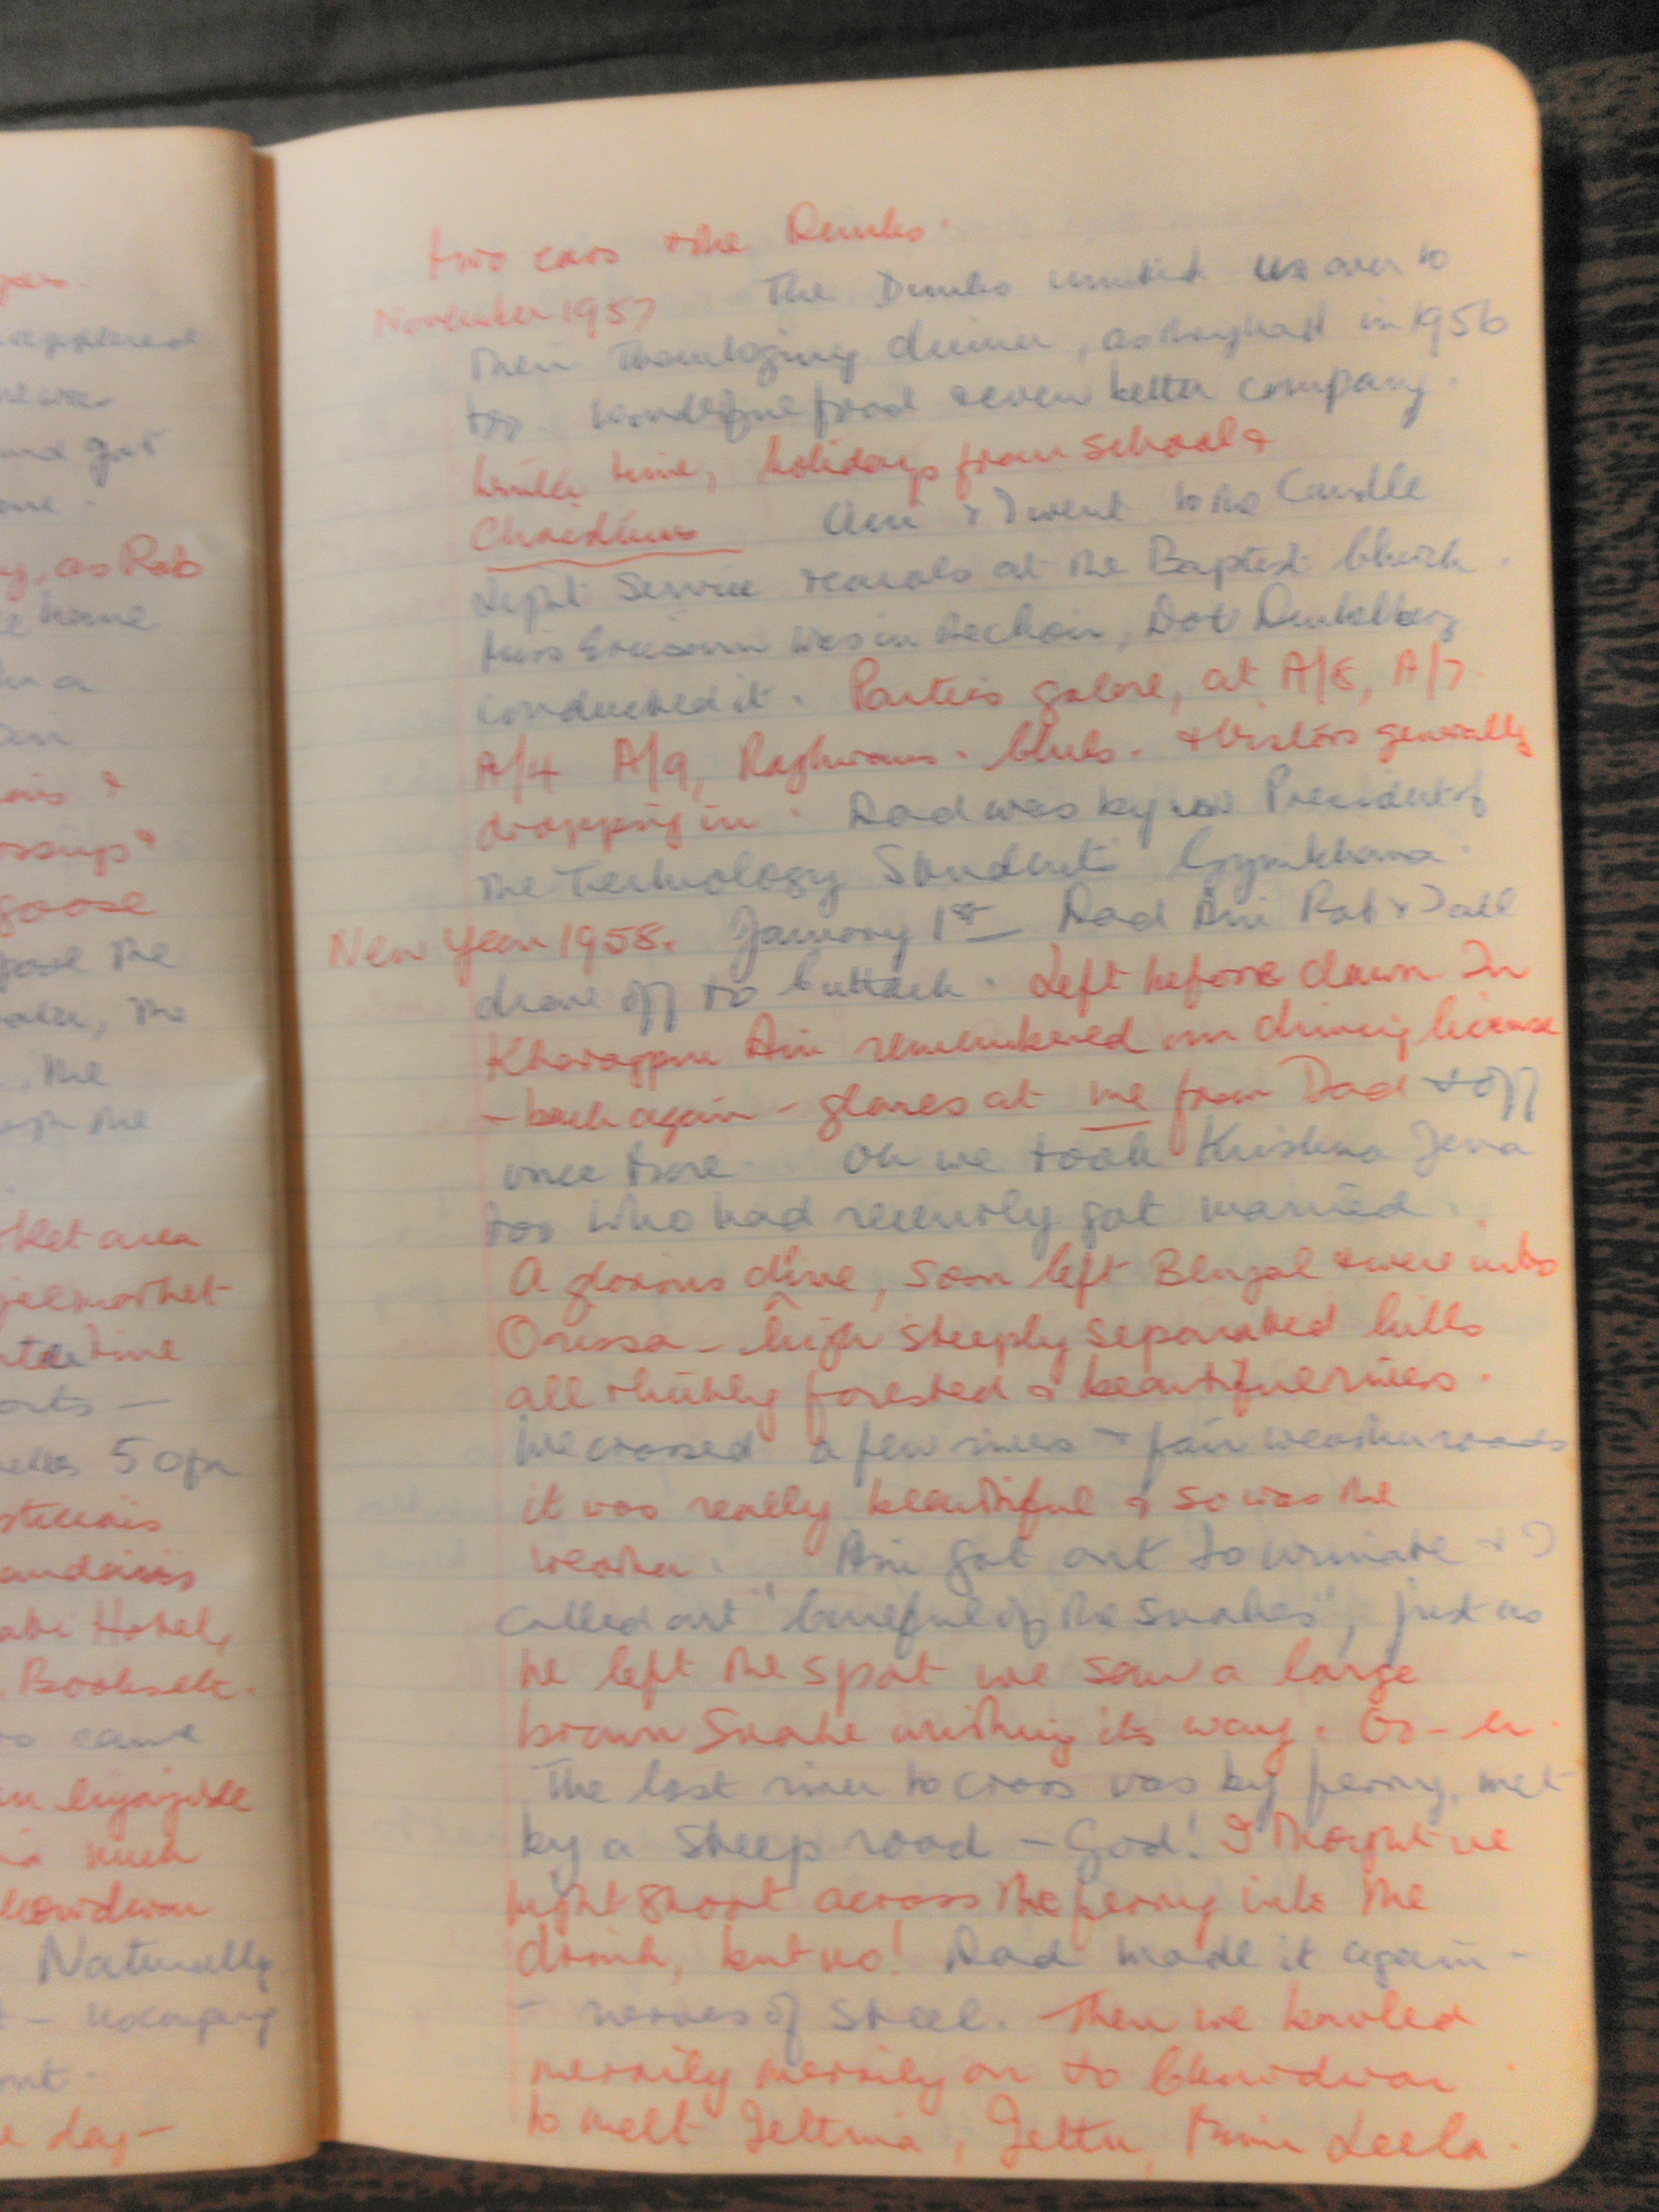 two cars & the Dunks.
November 1957 The Dunks invited us over to
their Thanksgiving dinner, as they had in 1956
too. Wonderful food & even better company.
time, holidays from school &
Christmas Ani & I went to the Candle
Light Service & carols at the Baptist Church.
Miss Ericson was in the choir, Dot Dunkelberg
conducted it. Parties galore, at A/8, A/7.
A/4 A/9, Raghwans. Clubs. & Visitors generally
dropping in. Dad was by now President of
the Technology Students Gymkhana.
New Year 1958. January 1st Dad Ani Rab & I all
drove off to Cuttack. Left before dawn In
Kharagpur Ani remembered our driving license
- back again - glares at me from Dad & off
once more. Oh we took Krishna Jena
too who had recently got married.
A glorious drive, soon left Bengal & were into
Orissa - high steeply separated hills
all thickly forested & beautiful rivers.
We crossed a few rivers & fair weather roads
it was really beautiful & so was the
weather. Ani got out to urinate & I
called out "Careful of the snakes", just as
he left the spot we saw a large
brown snake writhing its way. Oo-er.
The last river to cross was by ferry, met
by a steep road - God! I thought we
might shoot across the ferry into the
drink, but no! Dad made it again -
- nerves of steel. Then we bowled
merrily merrily on to Chowdwar
to meet Jeltu, Leela.
ket area
time
50
Hotel,
came
Naturally
day -